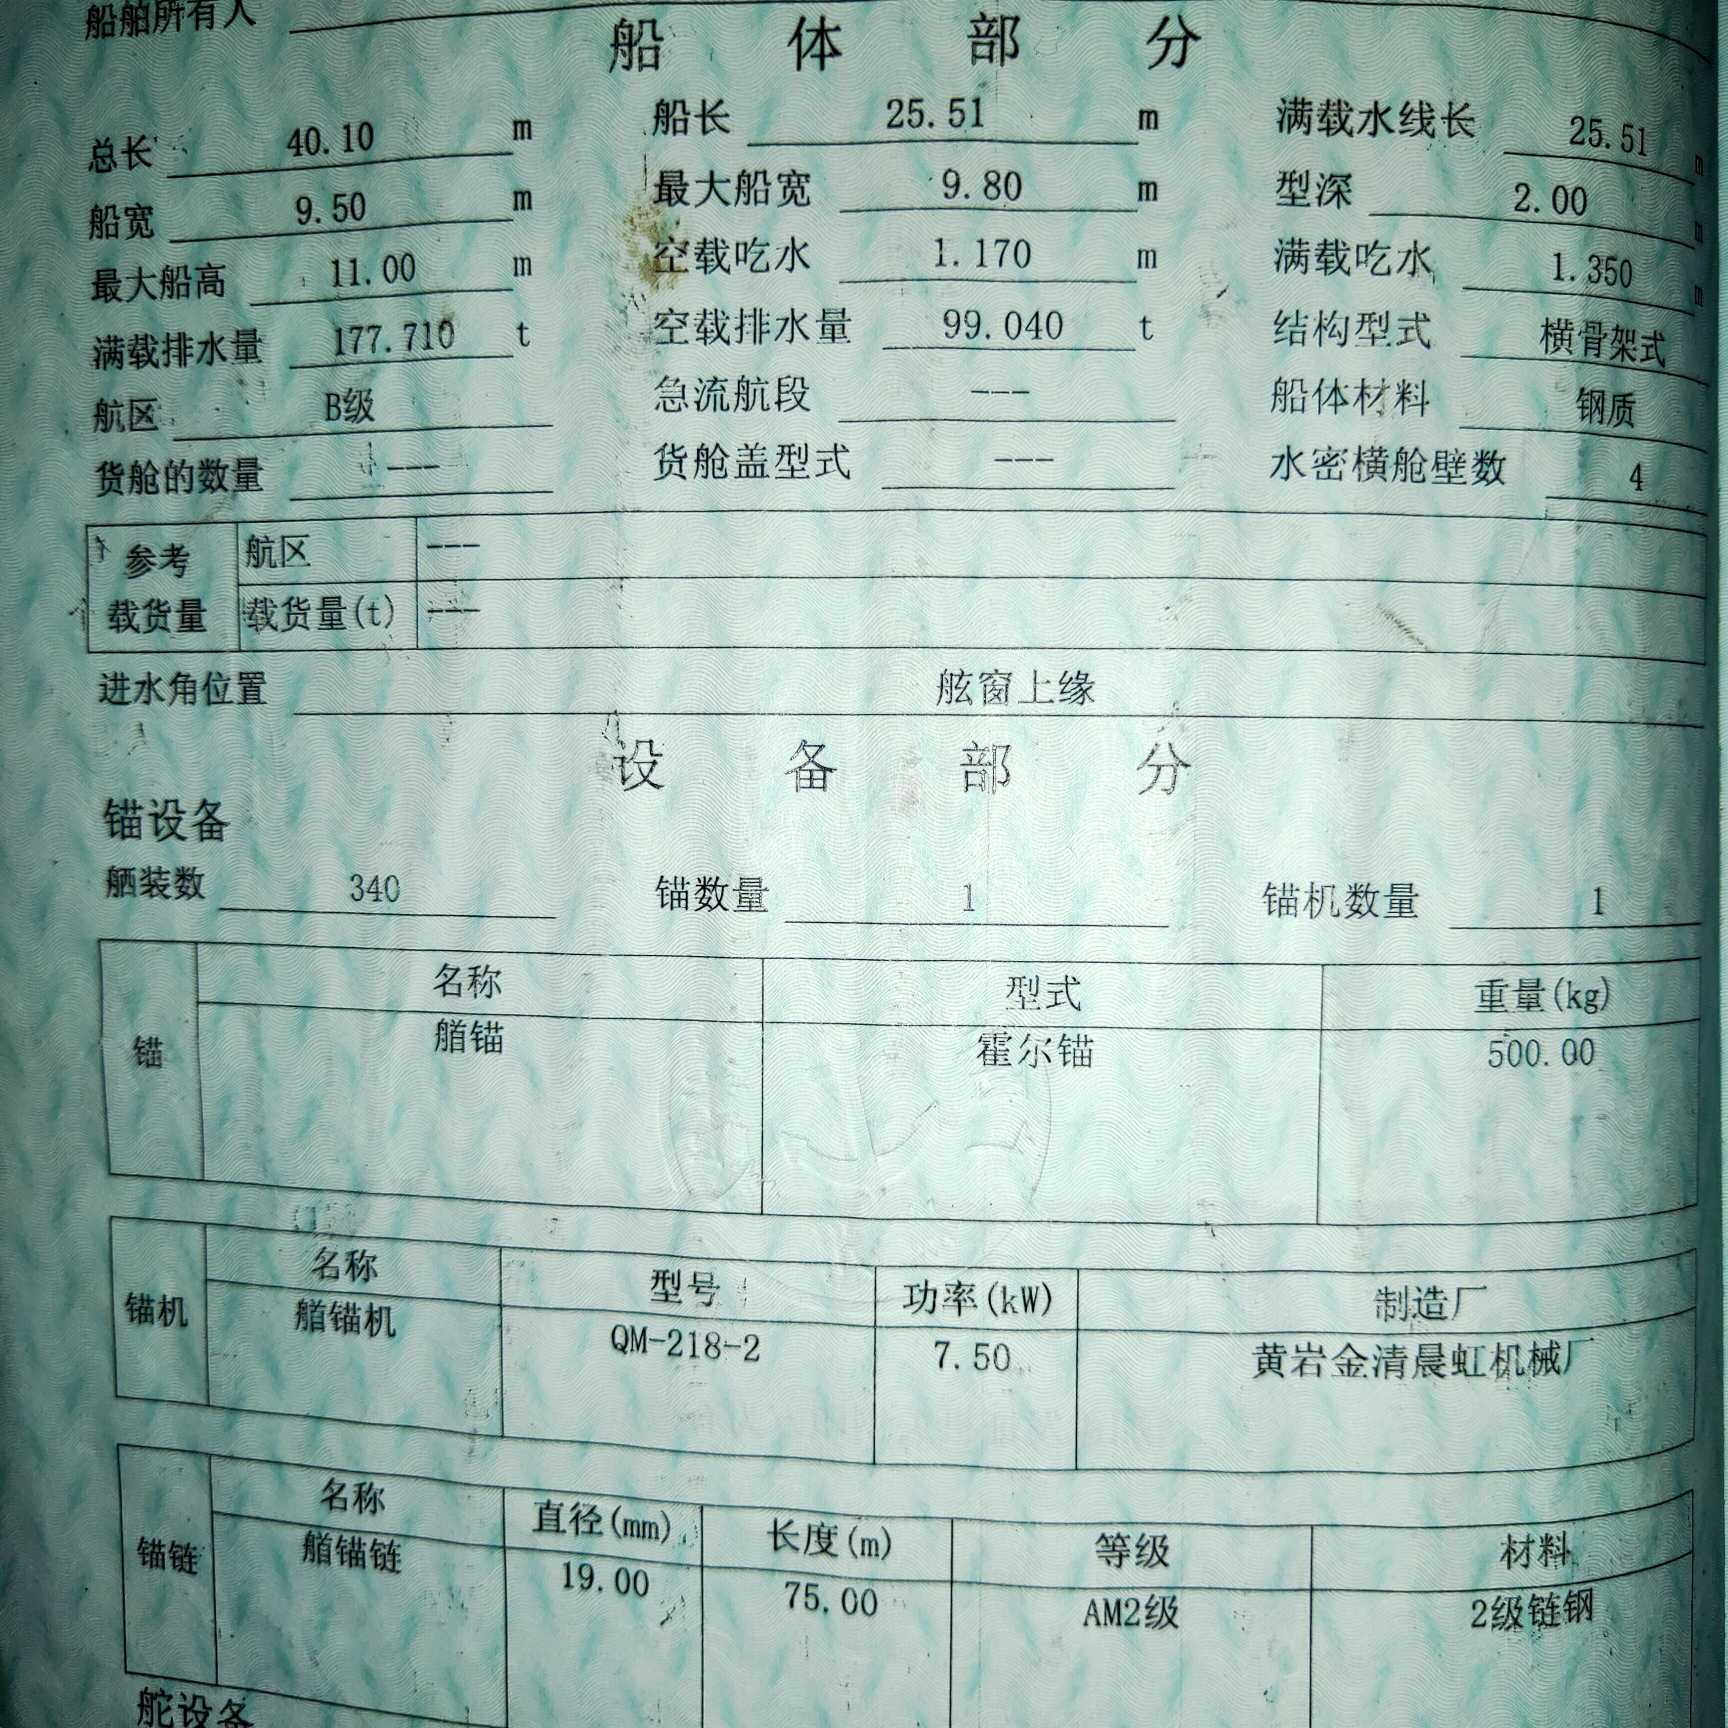 船舶所有人
船 体 部 分
总长 40.10 m 船长 25.51 m 满载水线长 25.51 m
船宽 9.50 m 最大船宽 9.80 m 型深 2.00 m
最大船高 11.00 m 空载吃水 1.170 m 满载吃水 1.350 m
满载排水量 177.710 t 空载排水量 99.040 t 结构型式 横骨架式
航区 B级 急流航段 --- 船体材料 钢质
货舱的数量 --- 货舱盖型式 --- 水密横舱壁数 4
参考 航区 ---
载货量 载货量(t) ---
进水角位置 舷窗上缘
设 备 部 分
锚设备
舾装数 340 锚数量 1 锚机数量 1
名称 型式 重量(kg)
锚 艏锚 霍尔锚 500.00
名称 型号 功率(kW) 制造厂
锚机 艏锚机 QM-218-2 7.50 黄岩金清晨虹机械厂
名称 直径(mm) 长度(m) 等级 材料
锚链 艏锚链 19.00 75.00 AM2级 2级链钢
舵设备